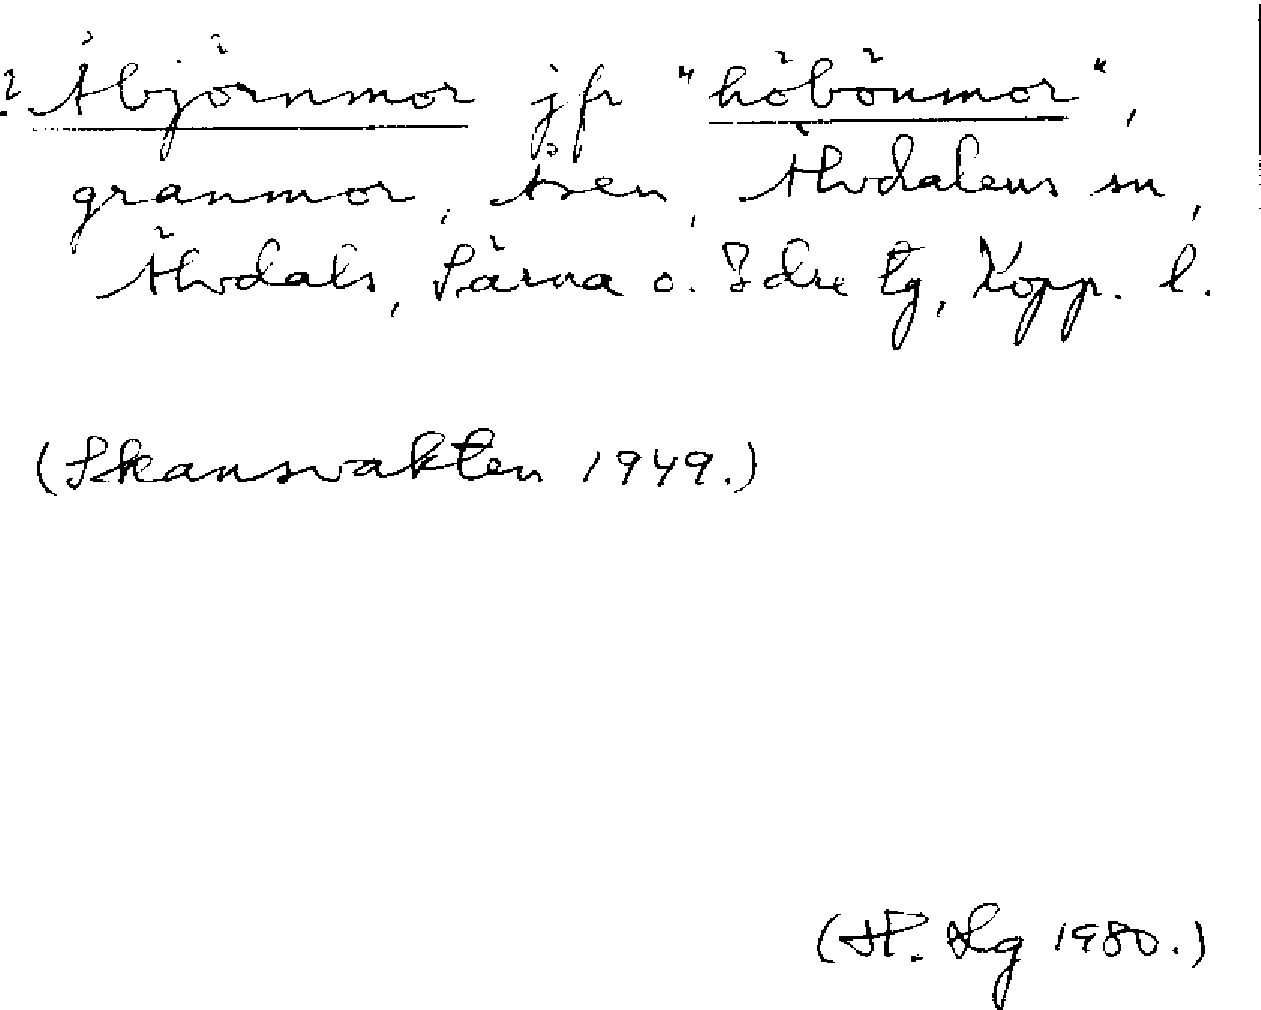 ? Åbjörnmor jfr "höbönmor",
granmor, Åsen, Älvdalens sn,
Älvdals, Särna o. Idre tg, Kopp. l.
(Skansvakten 1949.)
(H. Lg 1980.)